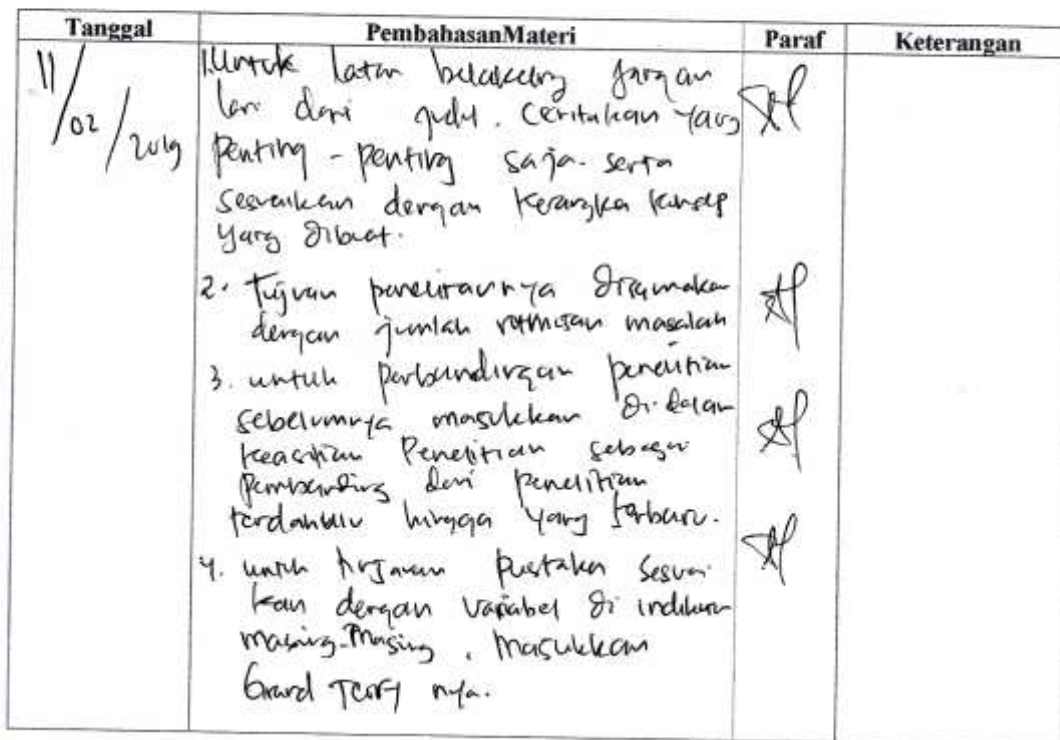 Tanggal PembahasanMateri Paraf Keterangan
11/02/2019
1. Untuk latar belakang jangan
lari dari judul. Ceritakan yang
penting - penting saja. serta
sesuaikan dengan kerangka konsep
yang dibuat.
2. Tujuan penelitiannya disamakan
dengan jumlah rumusan masalah
3. untuk perbandingan penelitian
sebelumnya masukkan di dalam
keaslian Penelitian sebagai
pembanding dari penelitian
terdahulu hingga yang terbaru.
4. untuk tinjauan pustaka sesuai
kan dengan variabel di
masing-masing, masukkan
Grand Teory nya.